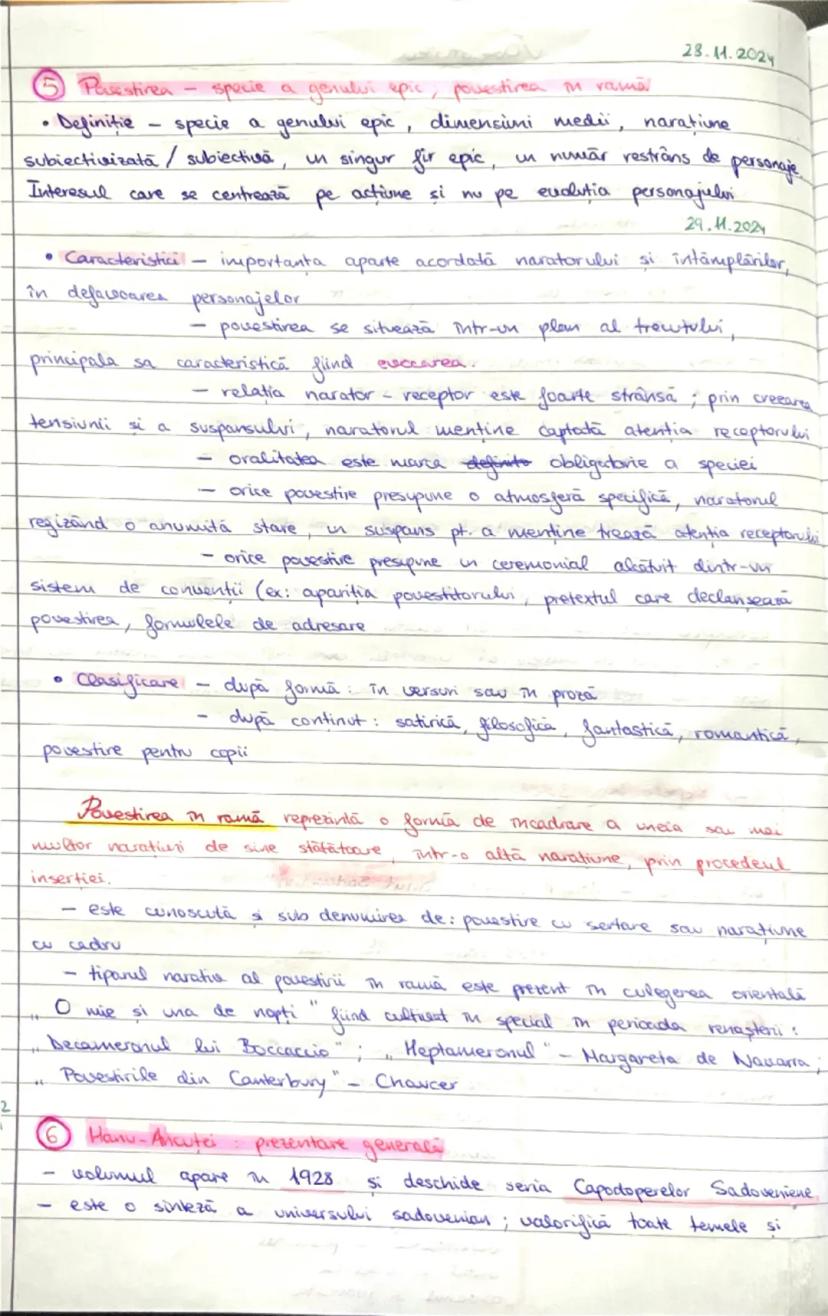 28.11.2024
5 Povestirea – specie a genului epic, povestirea în ramă
• Definiție – specie a genului epic, dimensiuni medii, narațiune
subiectivizată / subiectivă, un singur fir epic, un număr restrâns de personaje.
Interesul care se centrează pe acțiune și nu pe evoluția personajului
29.11.2024
• Caracteristici – importanța aparte acordată naratorului și întâmplărilor,
în defavoarea personajelor
– povestirea se situează într-un plan al trecutului,
principala sa caracteristică fiind evocarea.
– relația narator – receptor este foarte strânsă ; prin creearea
tensiunii și a suspansului, naratorul menține captată atenția receptorului
– oralitatea este marca definito obligatorie a speciei
– orice povestire presupune o atmosferă specifică, naratorul
regizând o anumită stare, un suspans pt. a menține trează atenția receptorului
– orice povestire presupune un ceremonial alcătuit dintr-un
sistem de convenții (ex: apariția povestitorului, pretextul care declanșează
povestirea, formulele de adresare
• Clasificare – după formă : în versuri sau în proză
– după conținut : satirică, filosofică, fantastică, romantică,
povestire pentru copii
Povestirea în ramă reprezintă o formă de încadrare a uneia sau mai
multor narațiuni de sine stătătoare, într-o altă narațiune, prin procedeul
inserției.
– este cunoscută și sub denumirea de : povestire cu sertare sau narațiune
cu cadru
– tiparul narativ al povestirii în ramă este prezent în culegerea orientală
„O mie și una de nopți" fiind cultivat în special în perioada renașterii :
„Decameronul lui Boccaccio" ; „Heptameronul" – Margareta de Navarra ;
„Povestirile din Canterbury" – Chaucer
2
6 Hanu-Ancuței : prezentare generală
– volumul apare în 1928 și deschide seria Capodoperelor Sadoveniene
– este o sinteză a universului sadovenian ; valorifică toate temele și